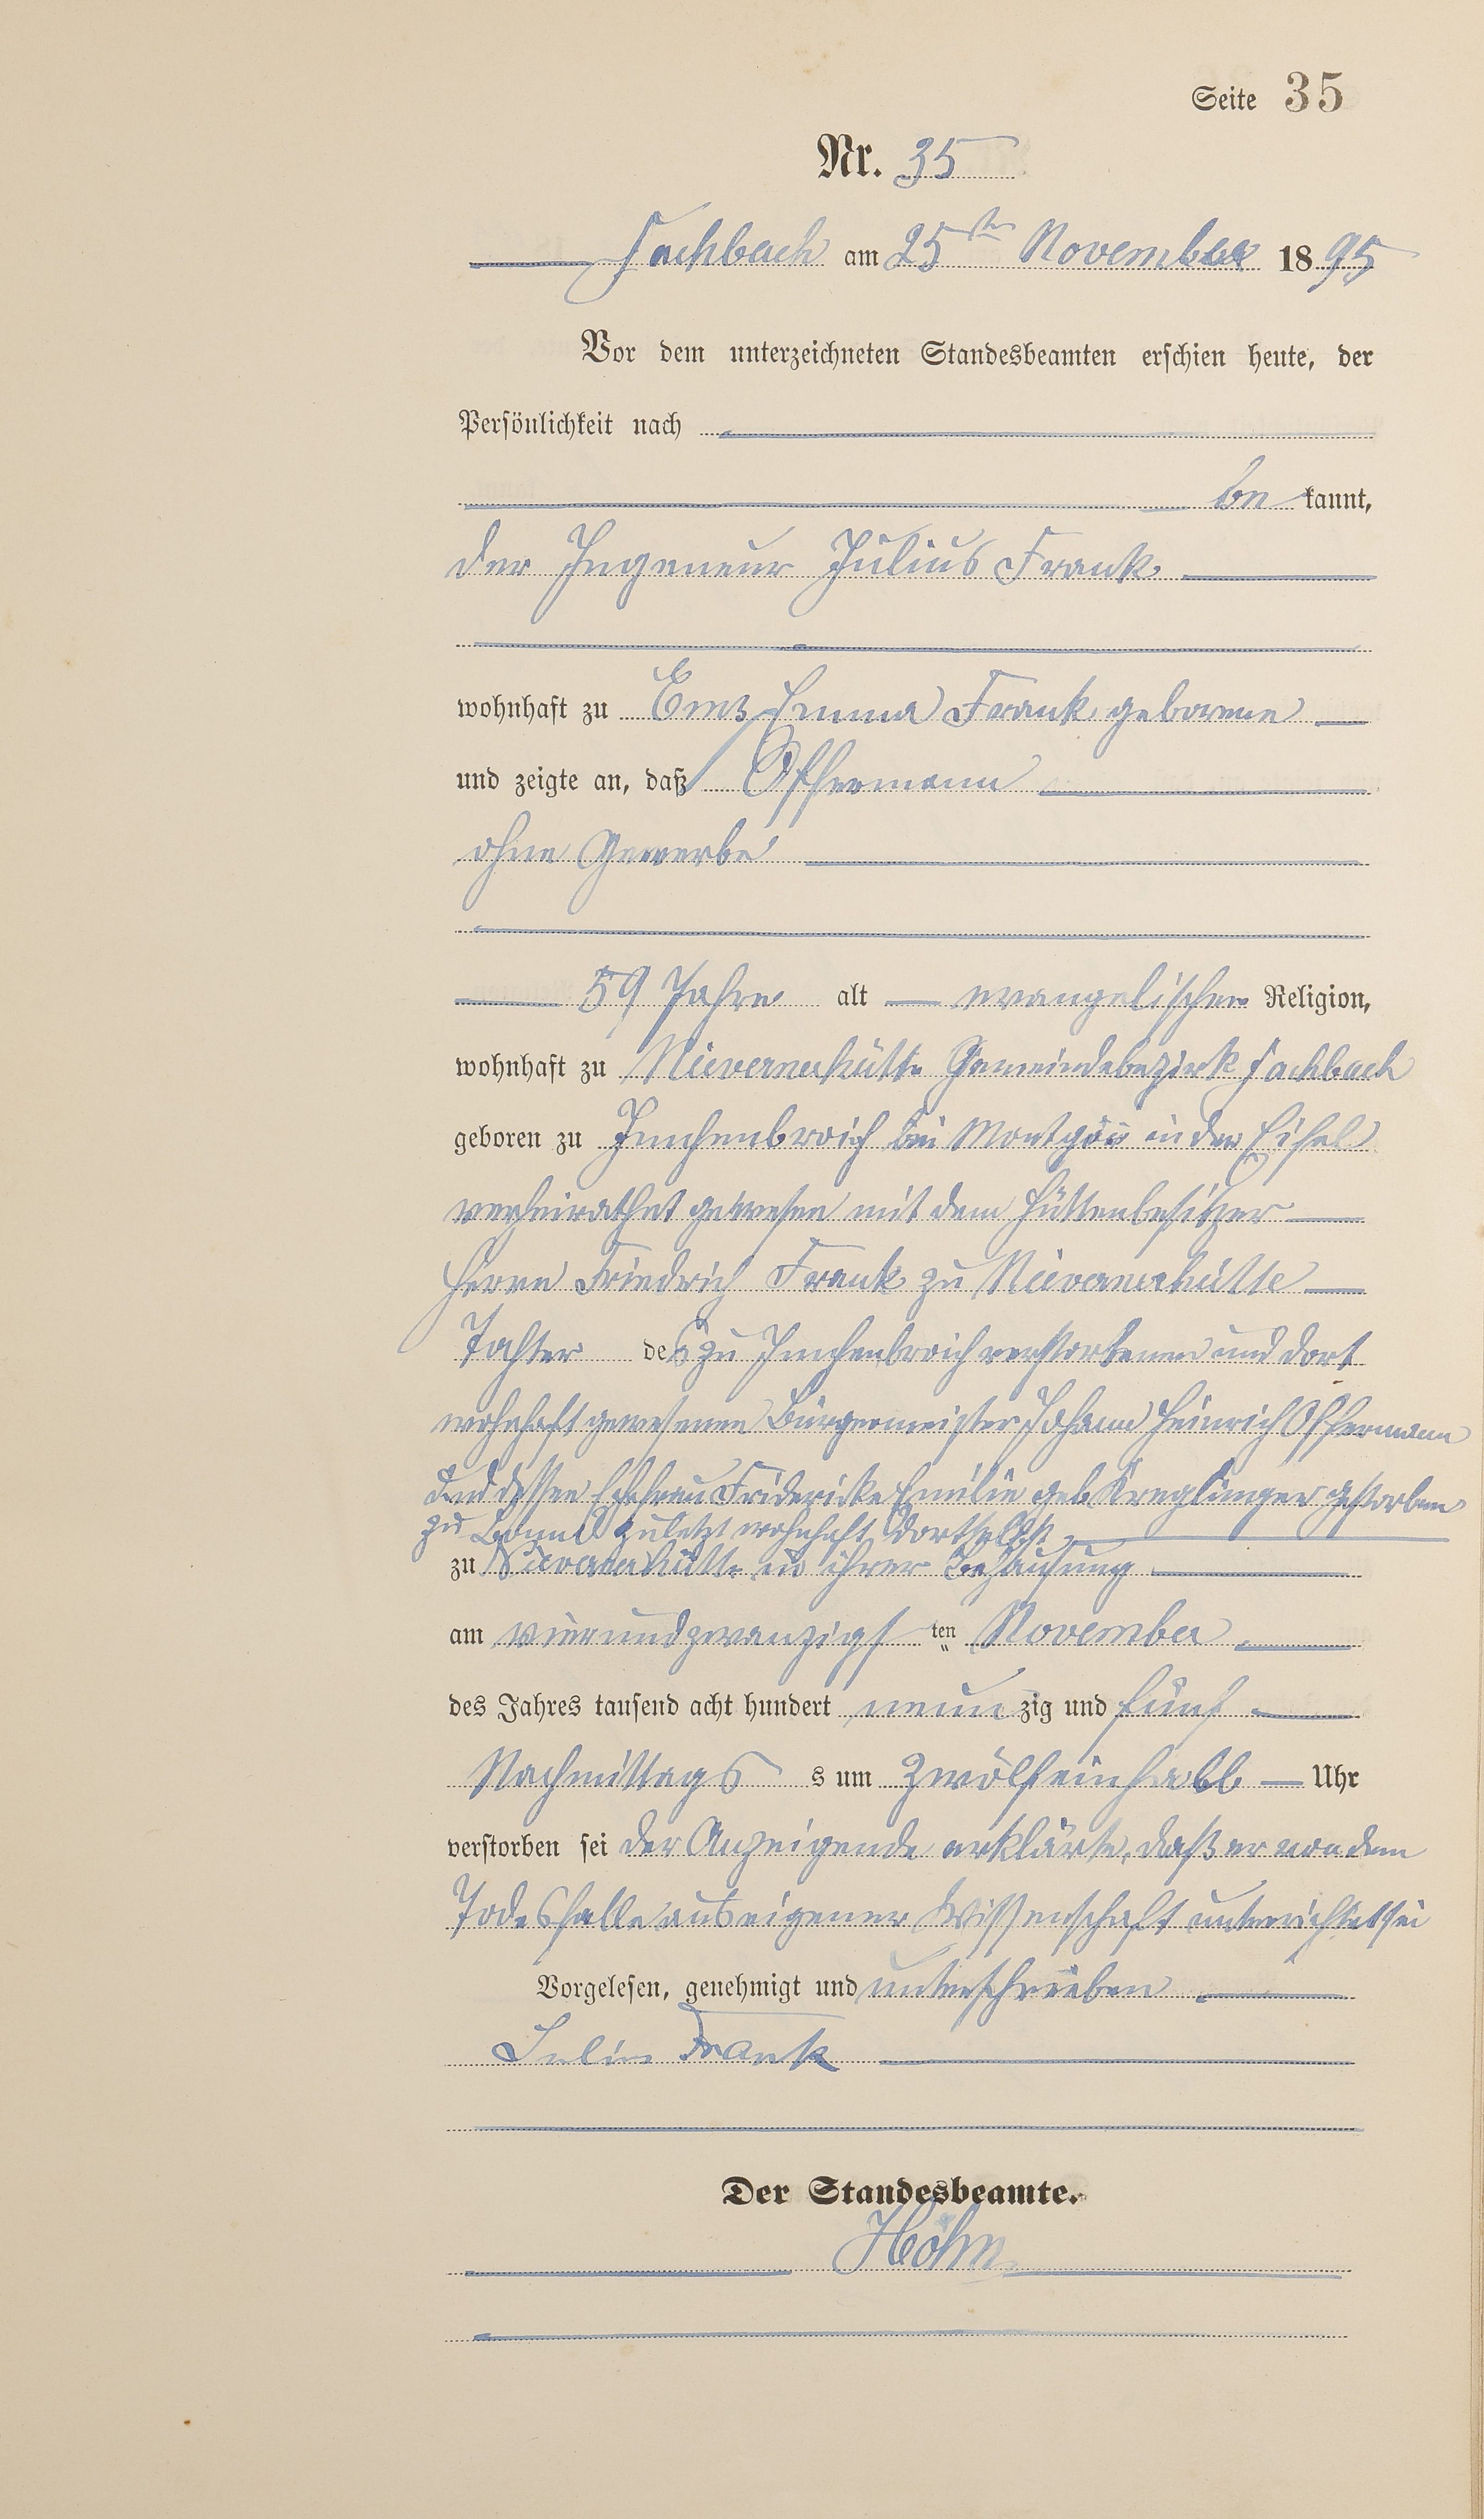 Seite 35
Nr. 35
Fachbach am 25ten November 1895
Vor dem unterzeichneten Standesbeamten erschien heute, der
Persönlichkeit nach
bekannt,
der Ingeneur Julius Frank
wohnhaft zu Ems Emma Frank geborene
und zeigte an, daß Offermann
ohne Gewerbe
59 Jahre alt evangelischer Religion,
wohnhaft zu Nievernerhütte Gemeindebezirk Fachbach
geboren zu Imchenbroich bei Montjoie in der Eifel
verheirathet gewesen mit dem Hüttenbesitzer
Herrn Friedrich Frank zu Nievernerhütte
Tochter des zu Imchenbroich verstorbenen und dort
wohnhaft gewesenen Bürgermeister Johann Heinrich Offermann
und dessen Ehefrau Fridericke Emilie geb Kreglinger gestorben
zu Bonn zuletzt wohnhaft dortselbst
zu Nievernerhütte in ihrer Behausung
am vierundzwanzigsten November
des Jahres tausend acht hundert neunzig und fünf
Nachmittags s um zwölfeinhalb Uhr
verstorben sei der Anzeigende erklärte, daß er von dem
Todesfalle aus eigener Wissenschaft unterrichtet sei
Vorgelesen, genehmigt und unterschrieben
Julius Frank
Der Standesbeamte.
Höhn